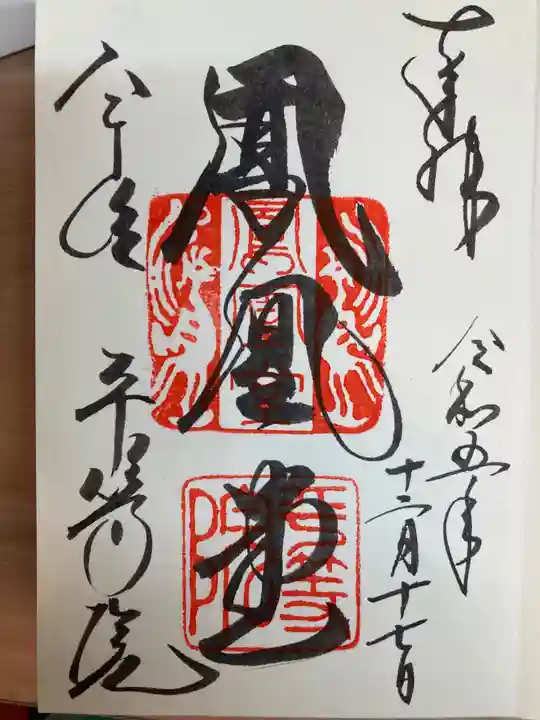 奉拝
令和五年
十二月十七日
鳳凰堂
平等院
平等
院印